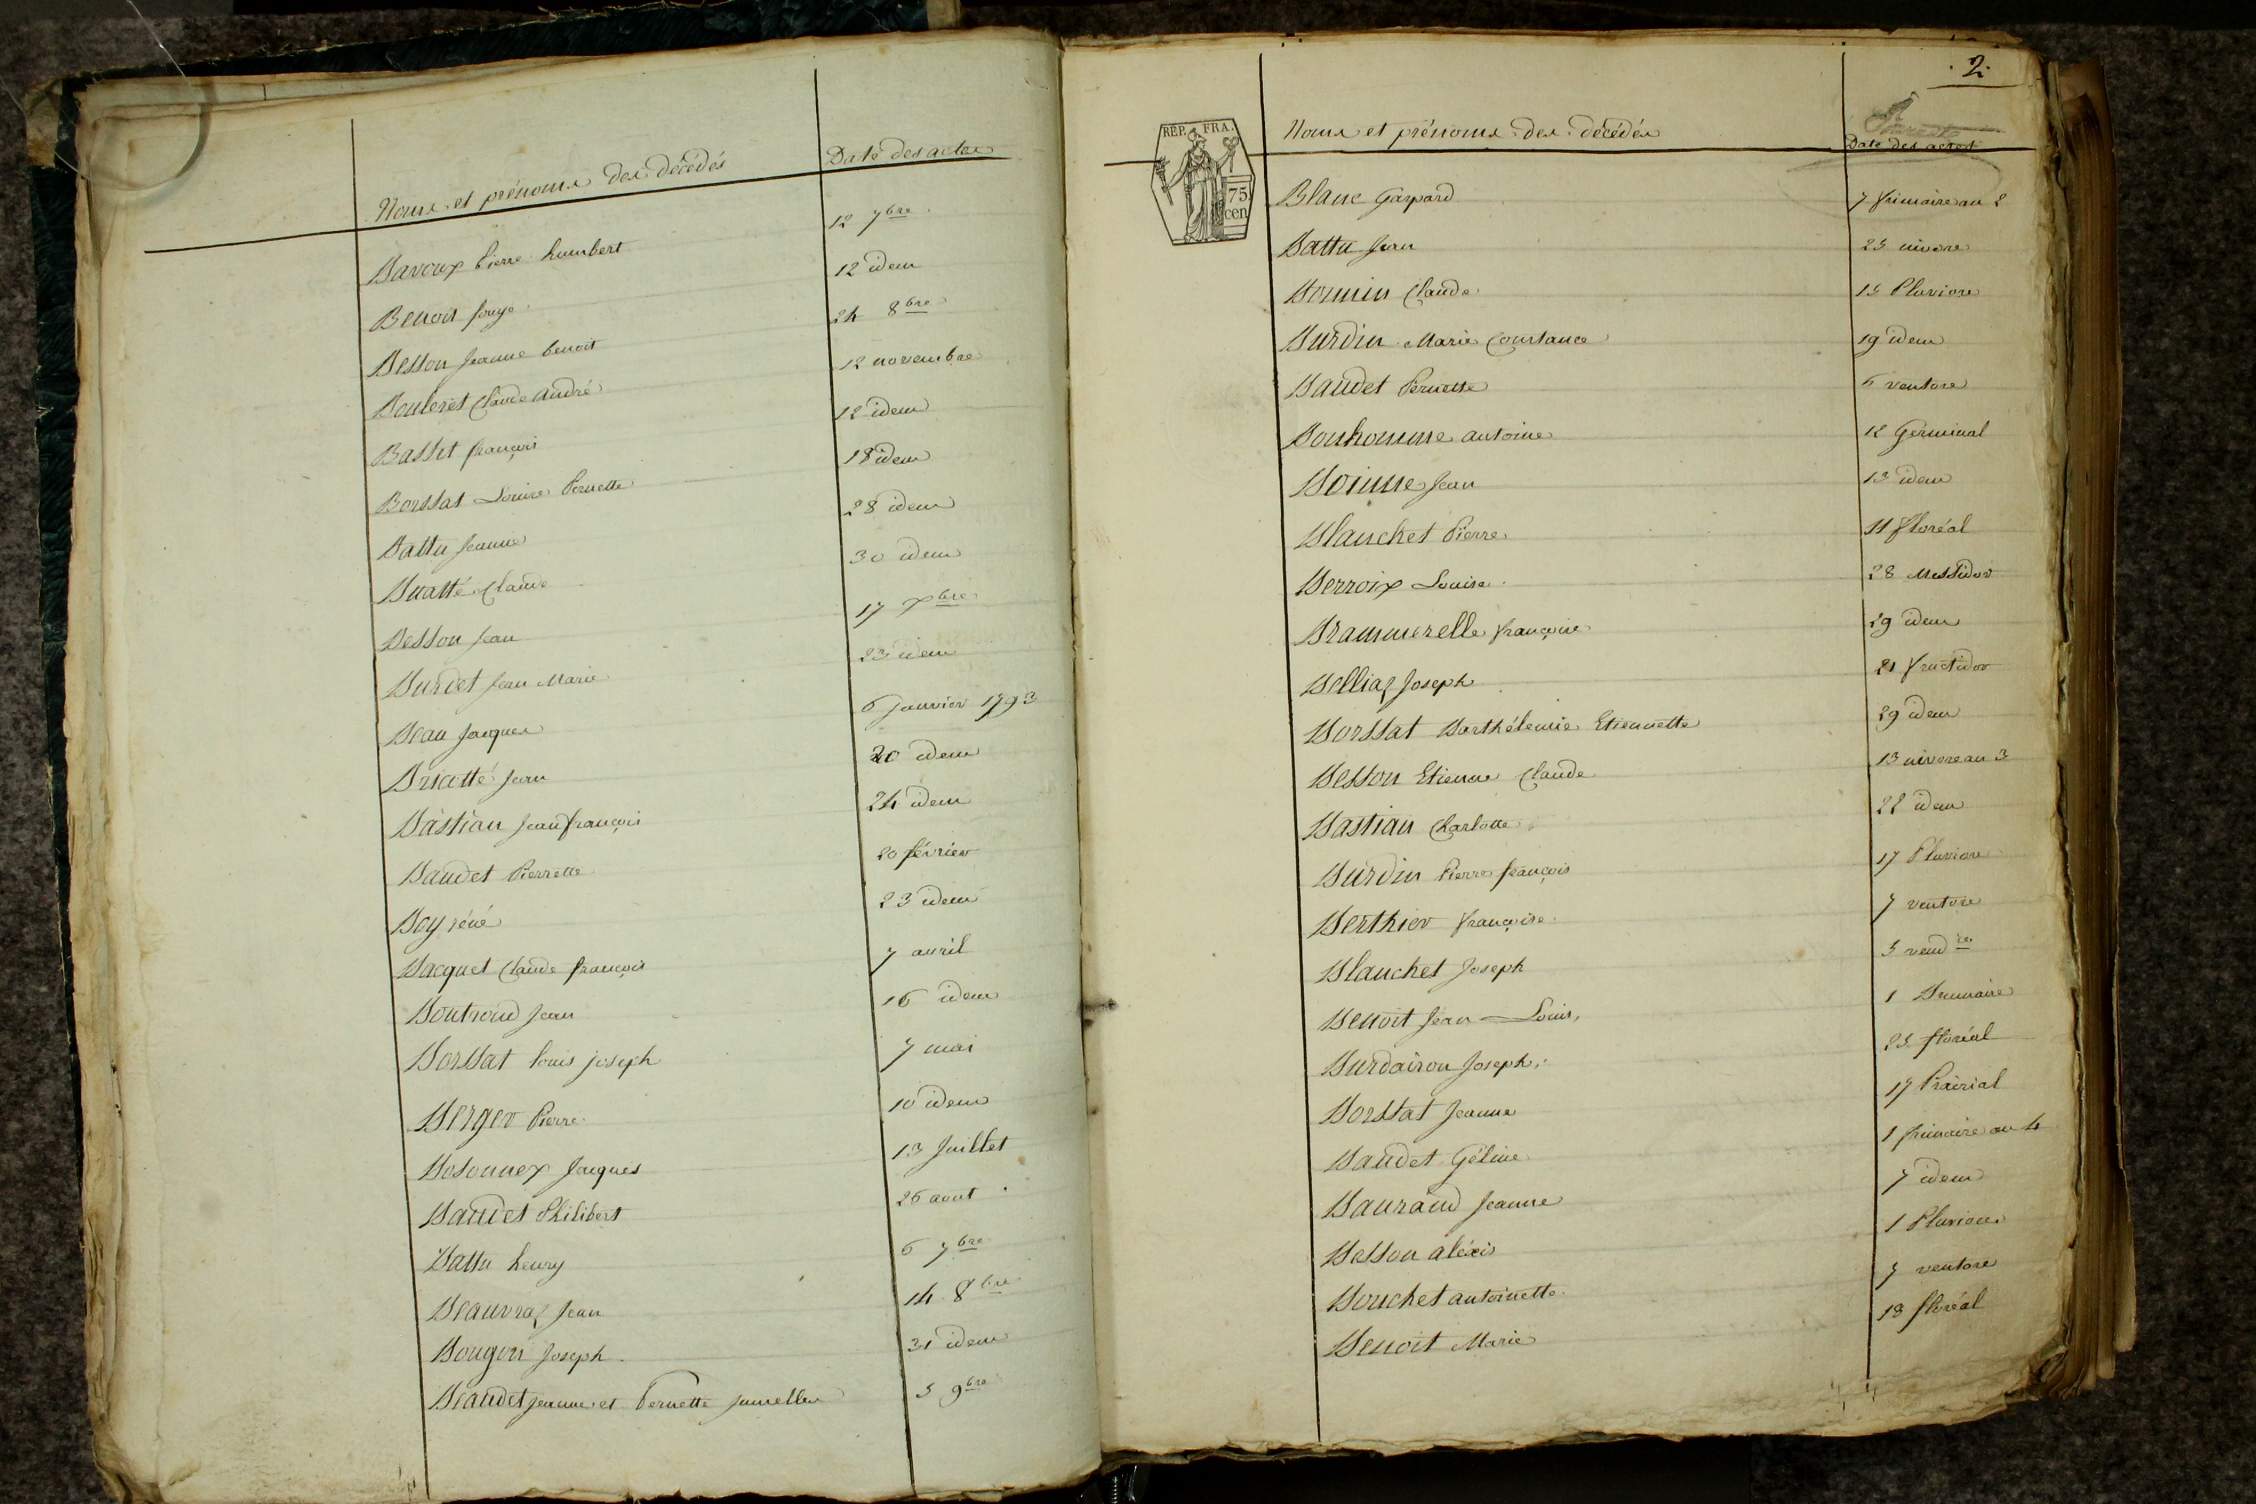 Noms et prénoms des décédés Date des actes
Bavoux Pierre humbert 12 7bre
Benoit 12 idem
Besson Jeanne benoit 24 8bre
Bouleret Claude André 12 novembre
Basset françois 12 idem
Borssat Louise Pernette 18 idem
Battu Jeanne 28 idem
Buatté Claude 30 idem
Besson Jean 17 xbre
Burdet Jean Marie 23 idem
Beau Jacques 6 Janvier 1793
Bricotté Jean 20 idem
Bastian Jean françois 24 idem
Baudet Pierrette 20 février
Boy réné 23 idem
Bacquet Claude françois 7 avril
Boutroud Jean 16 idem
Borssat louis joseph 7 mai
Berger Pierre 10 idem
Bosonnex Jacques 13 Juillet
Baudet Philibert 26 aout
Battu henry 6 7bre
Beauvraz Jean 14 8bre
Bougon Joseph 31 idem
Beaudet jeanne et Pernette jumelles 5 9bre
2
REP. FRA.
75
cen
Noms et prénoms des décédés Date des actes
Blanc Gaspard 7 frimaire an 2
Battu Jean 25 nivose
Bonnin Claude 15 Pluviose
Burdin Marie Constance 19 idem
Baudet Pernette 6 ventose
Bonhomme antoine 12 Germinal
Boinne Jean 13 idem
Blanchet Pierre 11 floréal
Berroix Louise 28 Messidor
Brammerelle françoise 29 idem
Belliaz Joseph 21 fructidor
Borssat Barthélemie Etiennette 29 idem
Besson Etienne Claude 13 nivose an 3
Bastian Charlotte 22 idem
Burdin Pierre françois 17 Pluviose
Berthier françoise 7 ventose
Blanchet Joseph 5 vendre
Benoit Jean Louis, 1 Brumaire
Burdairon Joseph, 25 floréal
Borssat Jeanne 17 Prairial
Baudet Géline 1 frimaire an 4
Bauraud Jeanne 7 idem
Besson aléxis 1 Pluviose
Bouchet antoinette 7 ventose
Benoit Marie 13 floréal